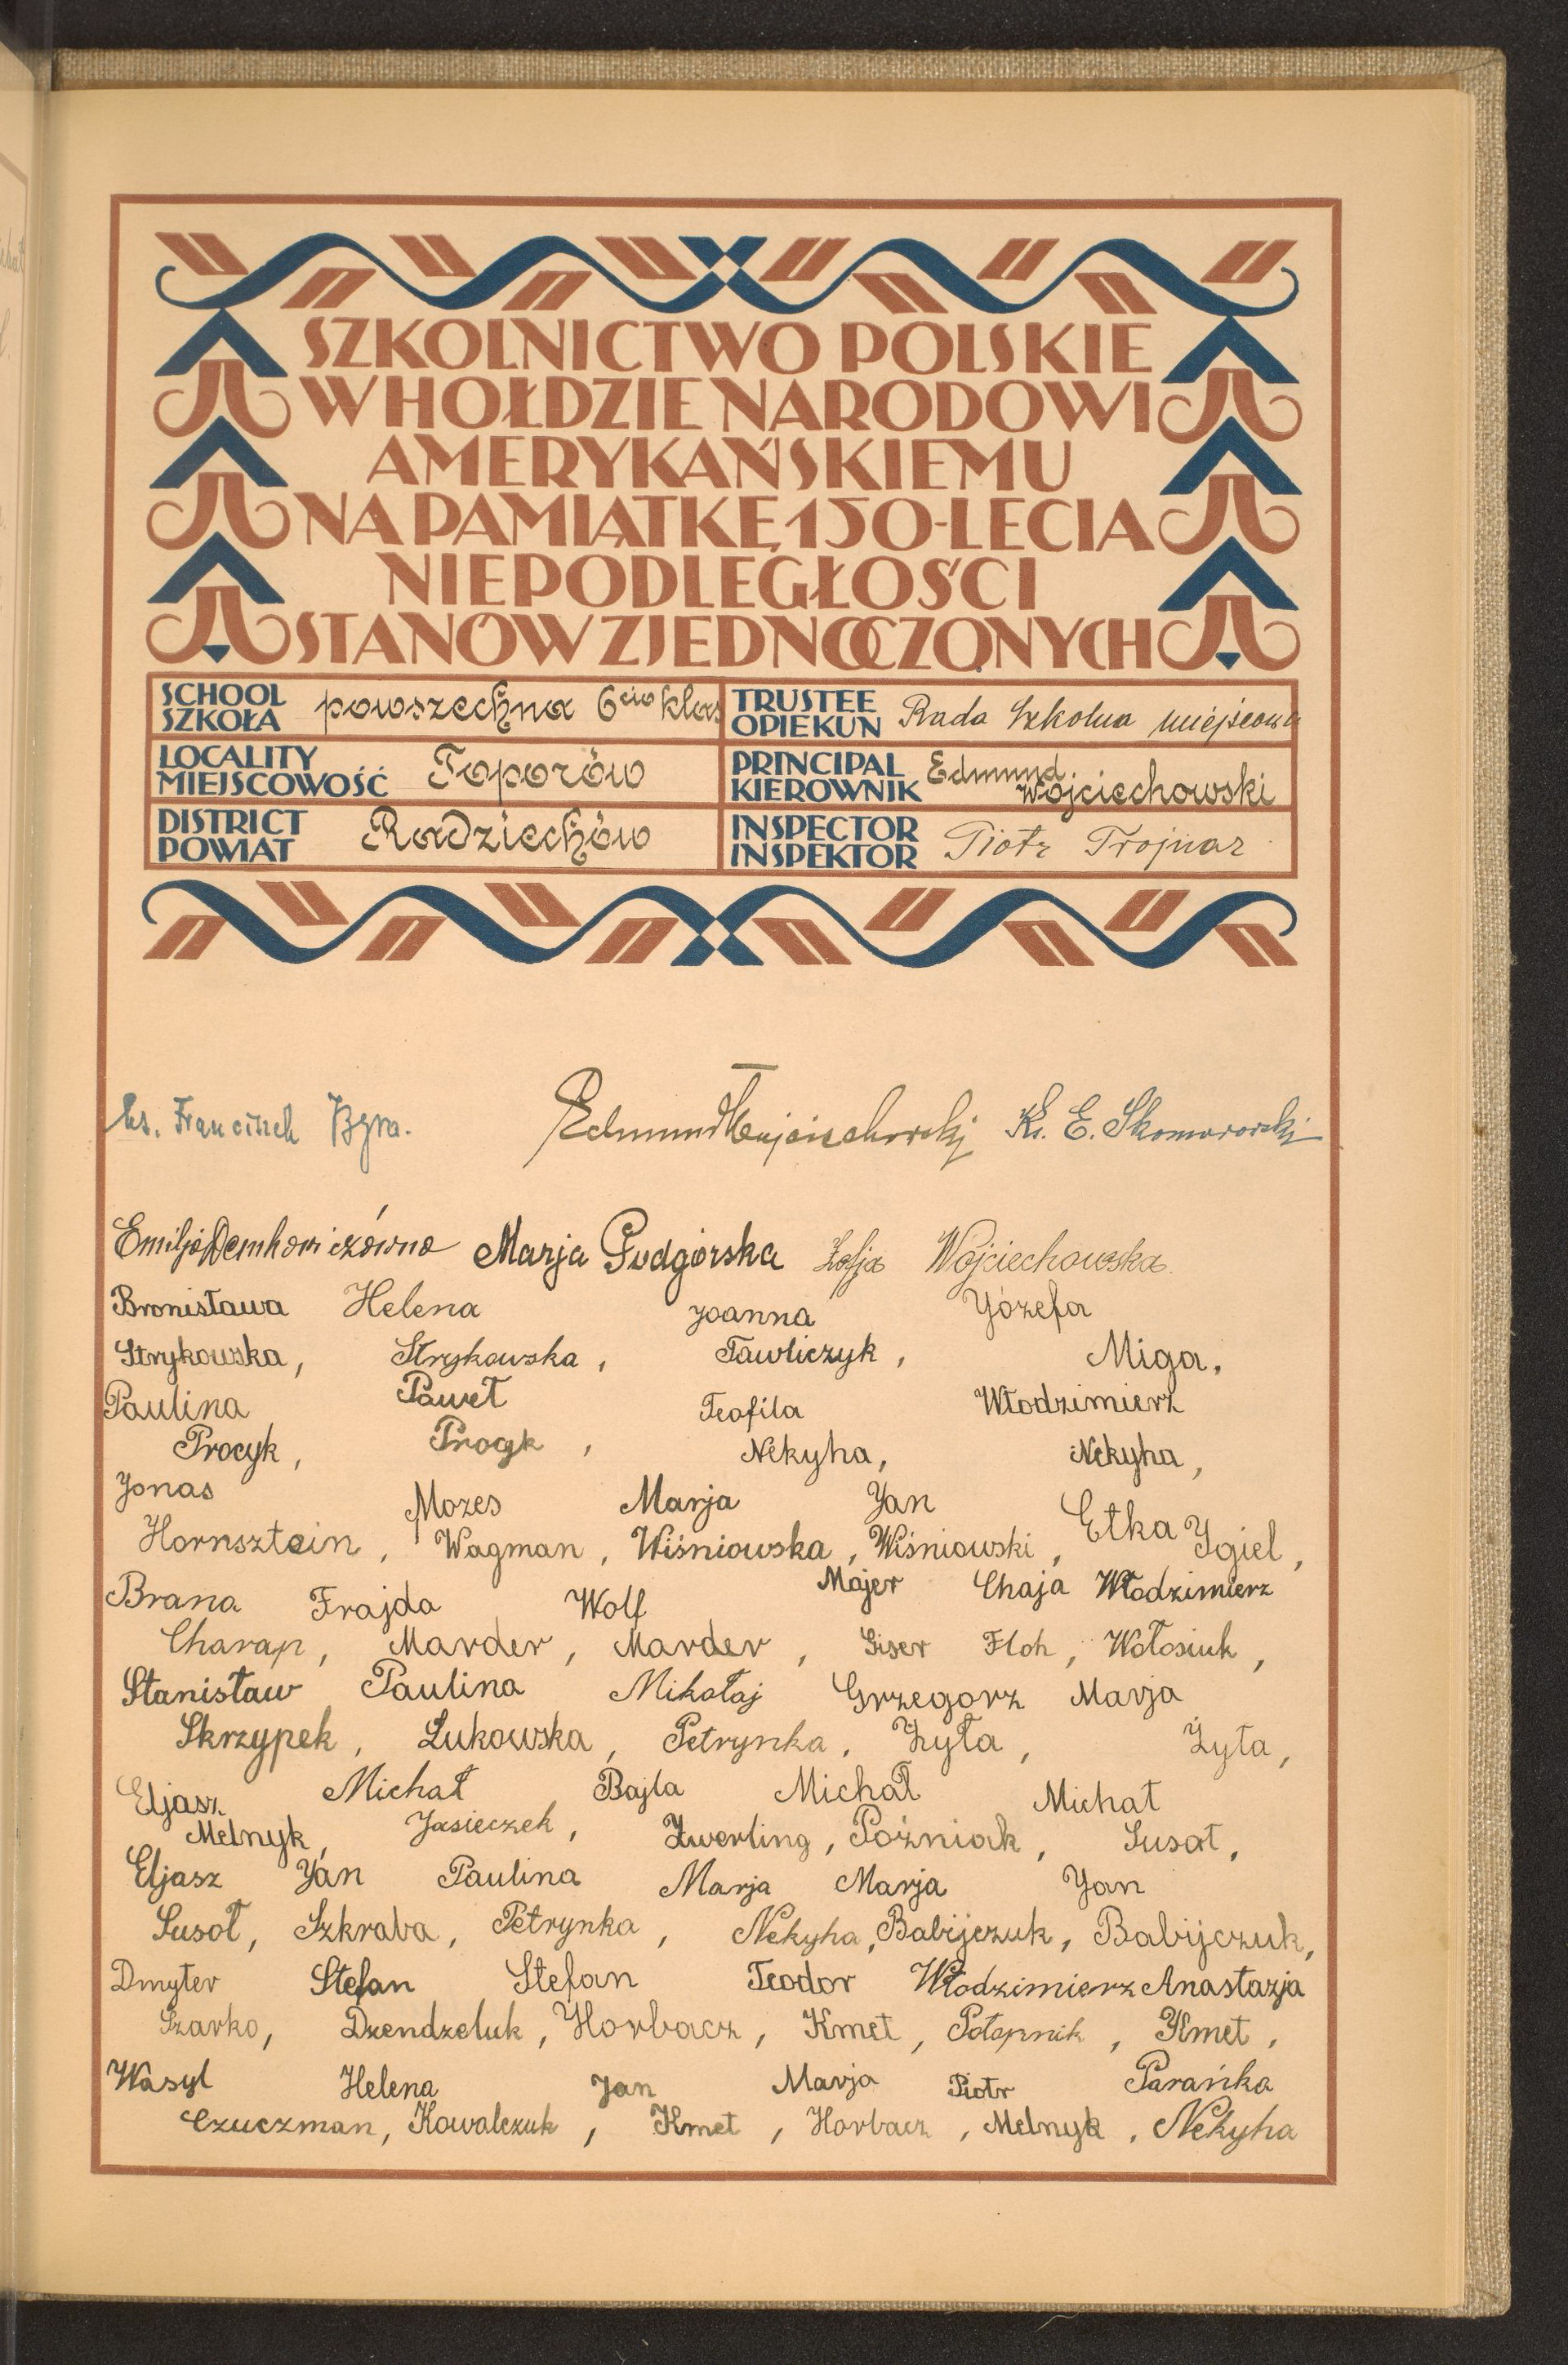 SZKOLNICTWO POLSKIE
W HOŁDZIE NARODOWI
AMERYKAŃSKIEMU
NA PAMIĄTKĘ 150-LECIA
NIEPODLEGŁOŚCI
STANÓW ZJEDNOCZONYCH
SCHOOL SZKOŁA powszechna 6cio klas
TRUSTEE OPIEKUN Rada Szkolna miejscowa
LOCALITY MIEJSCOWOŚĆ Toporów
PRINCIPAL KIEROWNIK Edmund Wojciechowski
DISTRICT POWIAT Radziechów
INSPECTOR INSPEKTOR Piotr Trojnar
Ks. Franciszek Edmund Wojciechowski Ks. E. Skomorowski
Emilja Demkowiczówna Marja Podgórska Zofja Wojciechowska
Bronisława Helena Joanna Józefa
Strykowska, Strykowska, Pawliczyk, Miga,
Paulina Paweł Teofila Włodzimierz
Procyk, Procyk, Nekyha, Nekyha,
Jonas Mozes Marja Jan Etka Igiel,
Hornsztein, Wagman, Wiśniowska, Wiśniowski,
Brana Frajda Wolf Majer Chaja Włodzimierz
Charap, Marder, Marder, Giser Floh, Wołosiuk,
Stanisław Paulina Mikołaj Grzegorz Marja
Skrzypek, Łukowska, Petrynka, Żyła, Żyła,
Eljasz Michał Bajla Michał Michał
Melnyk, Jasieczek, Zwerling, Poźniak, Susał,
Eljasz Jan Paulina Marja Marja Jan
Susoł, Szkraba, Petrynka, Nekyha, Babijczuk, Babijczuk,
Dmyter Stefan Stefan Teodor Włodzimierz Anastazja
Szarko, Dzendzeluk, Horbacz, Kmet, Potopnik, Kmet,
Wasyl Helena Jan Marja Piotr Parańka
Czuczman, Kowalczuk, Kmet, Horbacz, Melnyk, Nekyha